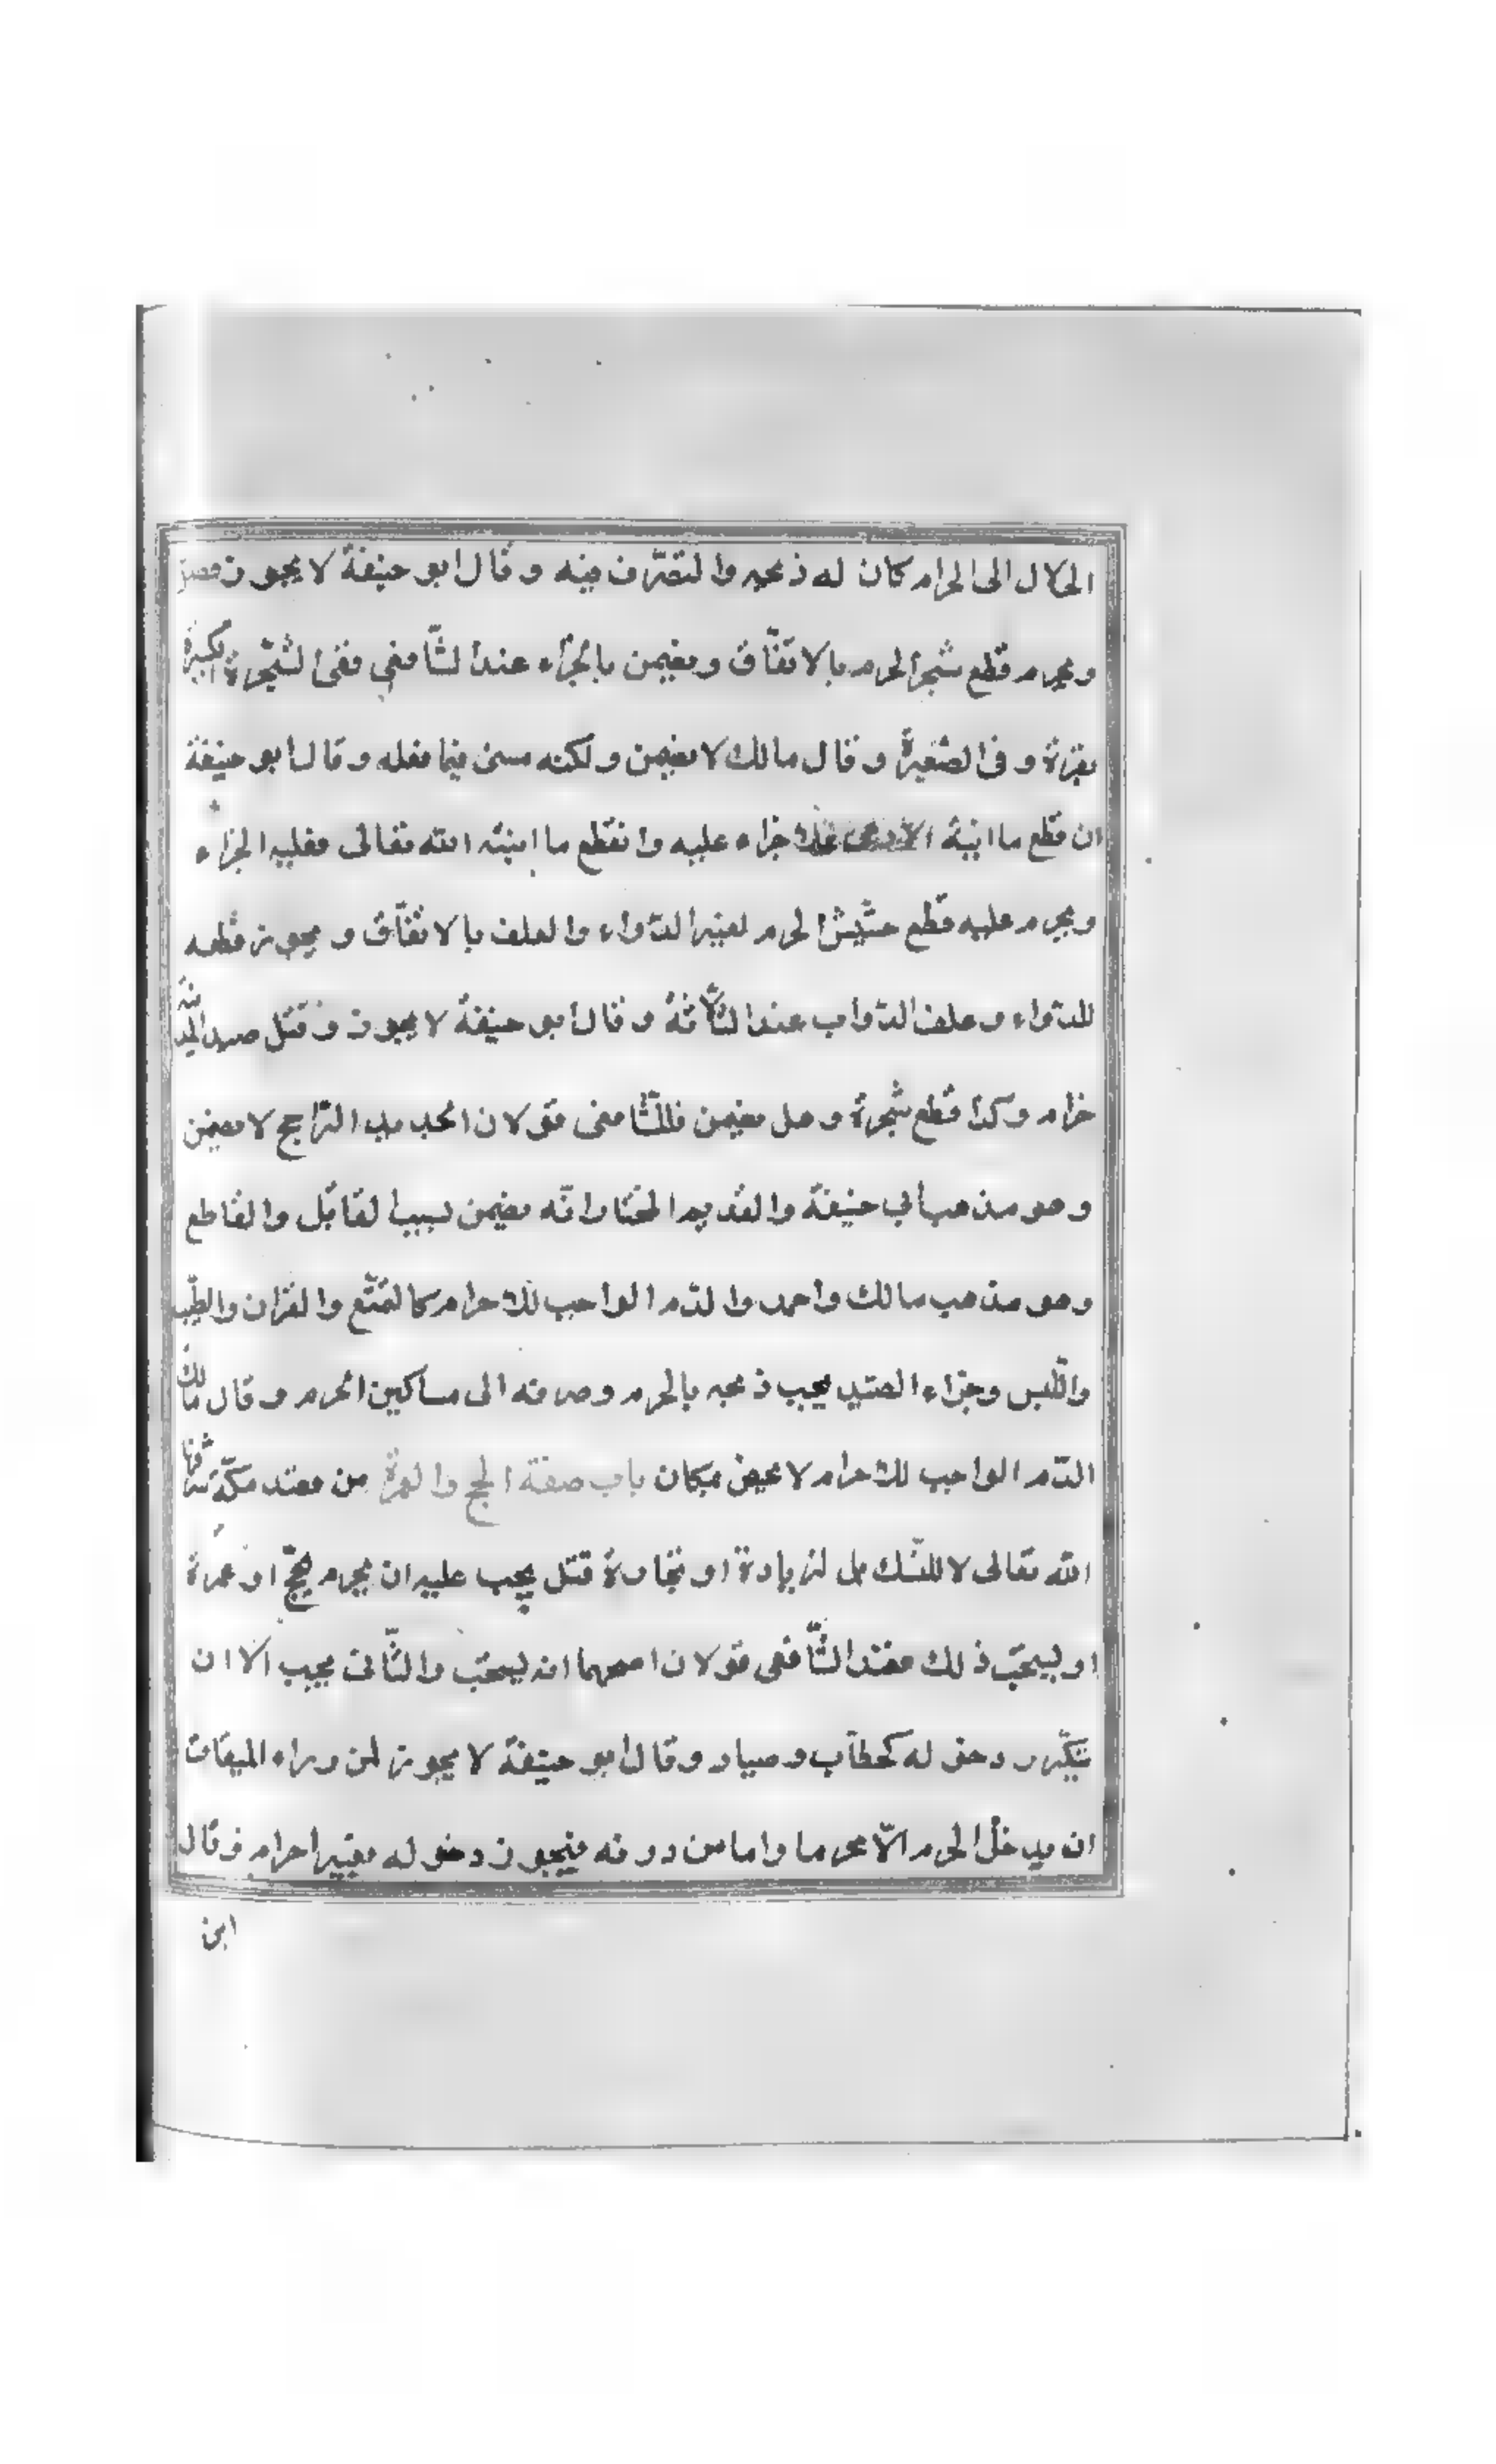 الحلال الى الحرام كان له ذبحه والتصرّف فيه وقال ابو حنيفة لا يجوز فصل
ويحرم قطع شجر الحرم بالاتفّاق ويضمن بالجزاء عند الشّافعي ففى الشّجرة الكبيرة
بقرة وفى الصّغيرة وقال مالك لا يضمن ولكنه مسئ فيما فعله وقال ابو حنيفة
ان قطع ما انبته الآدمى فلا جزاء عليه وان قطع ما انبته الله تعالى فعليه الجزاء
ويحرم عليه قطع حشّيش الحرم لغير الدّواء والعلف بالاتفّاق ويجوز قطعه
للدّواء وعلف الدّواب عند الثّلاثة وقال ابو حنيفة لا يجوز وقتل صيد المدينة
حرام وكذا قطع شجرة وهل يضمن فللشّافعى قولان الجديد الرّاجح لا يضمن
وهو مذهب أبي حنيفة والقديم المختار انّه يضمن بسبب القاتل والقاطع
وهو مذهب مالك واحمد والدّم الواجب للاحرام كالتمتّع والقران والطّيب
واللّبس وجزاء الصّيد يجب ذبحه بالحرم وصرفه الى مساكين الحرم وقال مالك
الدّم الواجب للاحرام لا يختص بمكان باب صفة الحج والعمرة من قصد مكّة شرّفها
الله تعالى لا للنّسك بل لزيارة او تجارة قتل يجب عليه ان يحرم بحجّ او عمرة
او يستحبّ ذلك فعند الشّافعى قولان اصحهما انه يستحبّ والثّانى يجب الا ان
يتكّرر دخوله كحطّاب وصياد وقال ابو حنيفة لا يجوز لمن وراء الميقات
ان يدخل الحرم الّا محرما واما من دونه فيجوز دخوله بغير احرام وقال
ابن